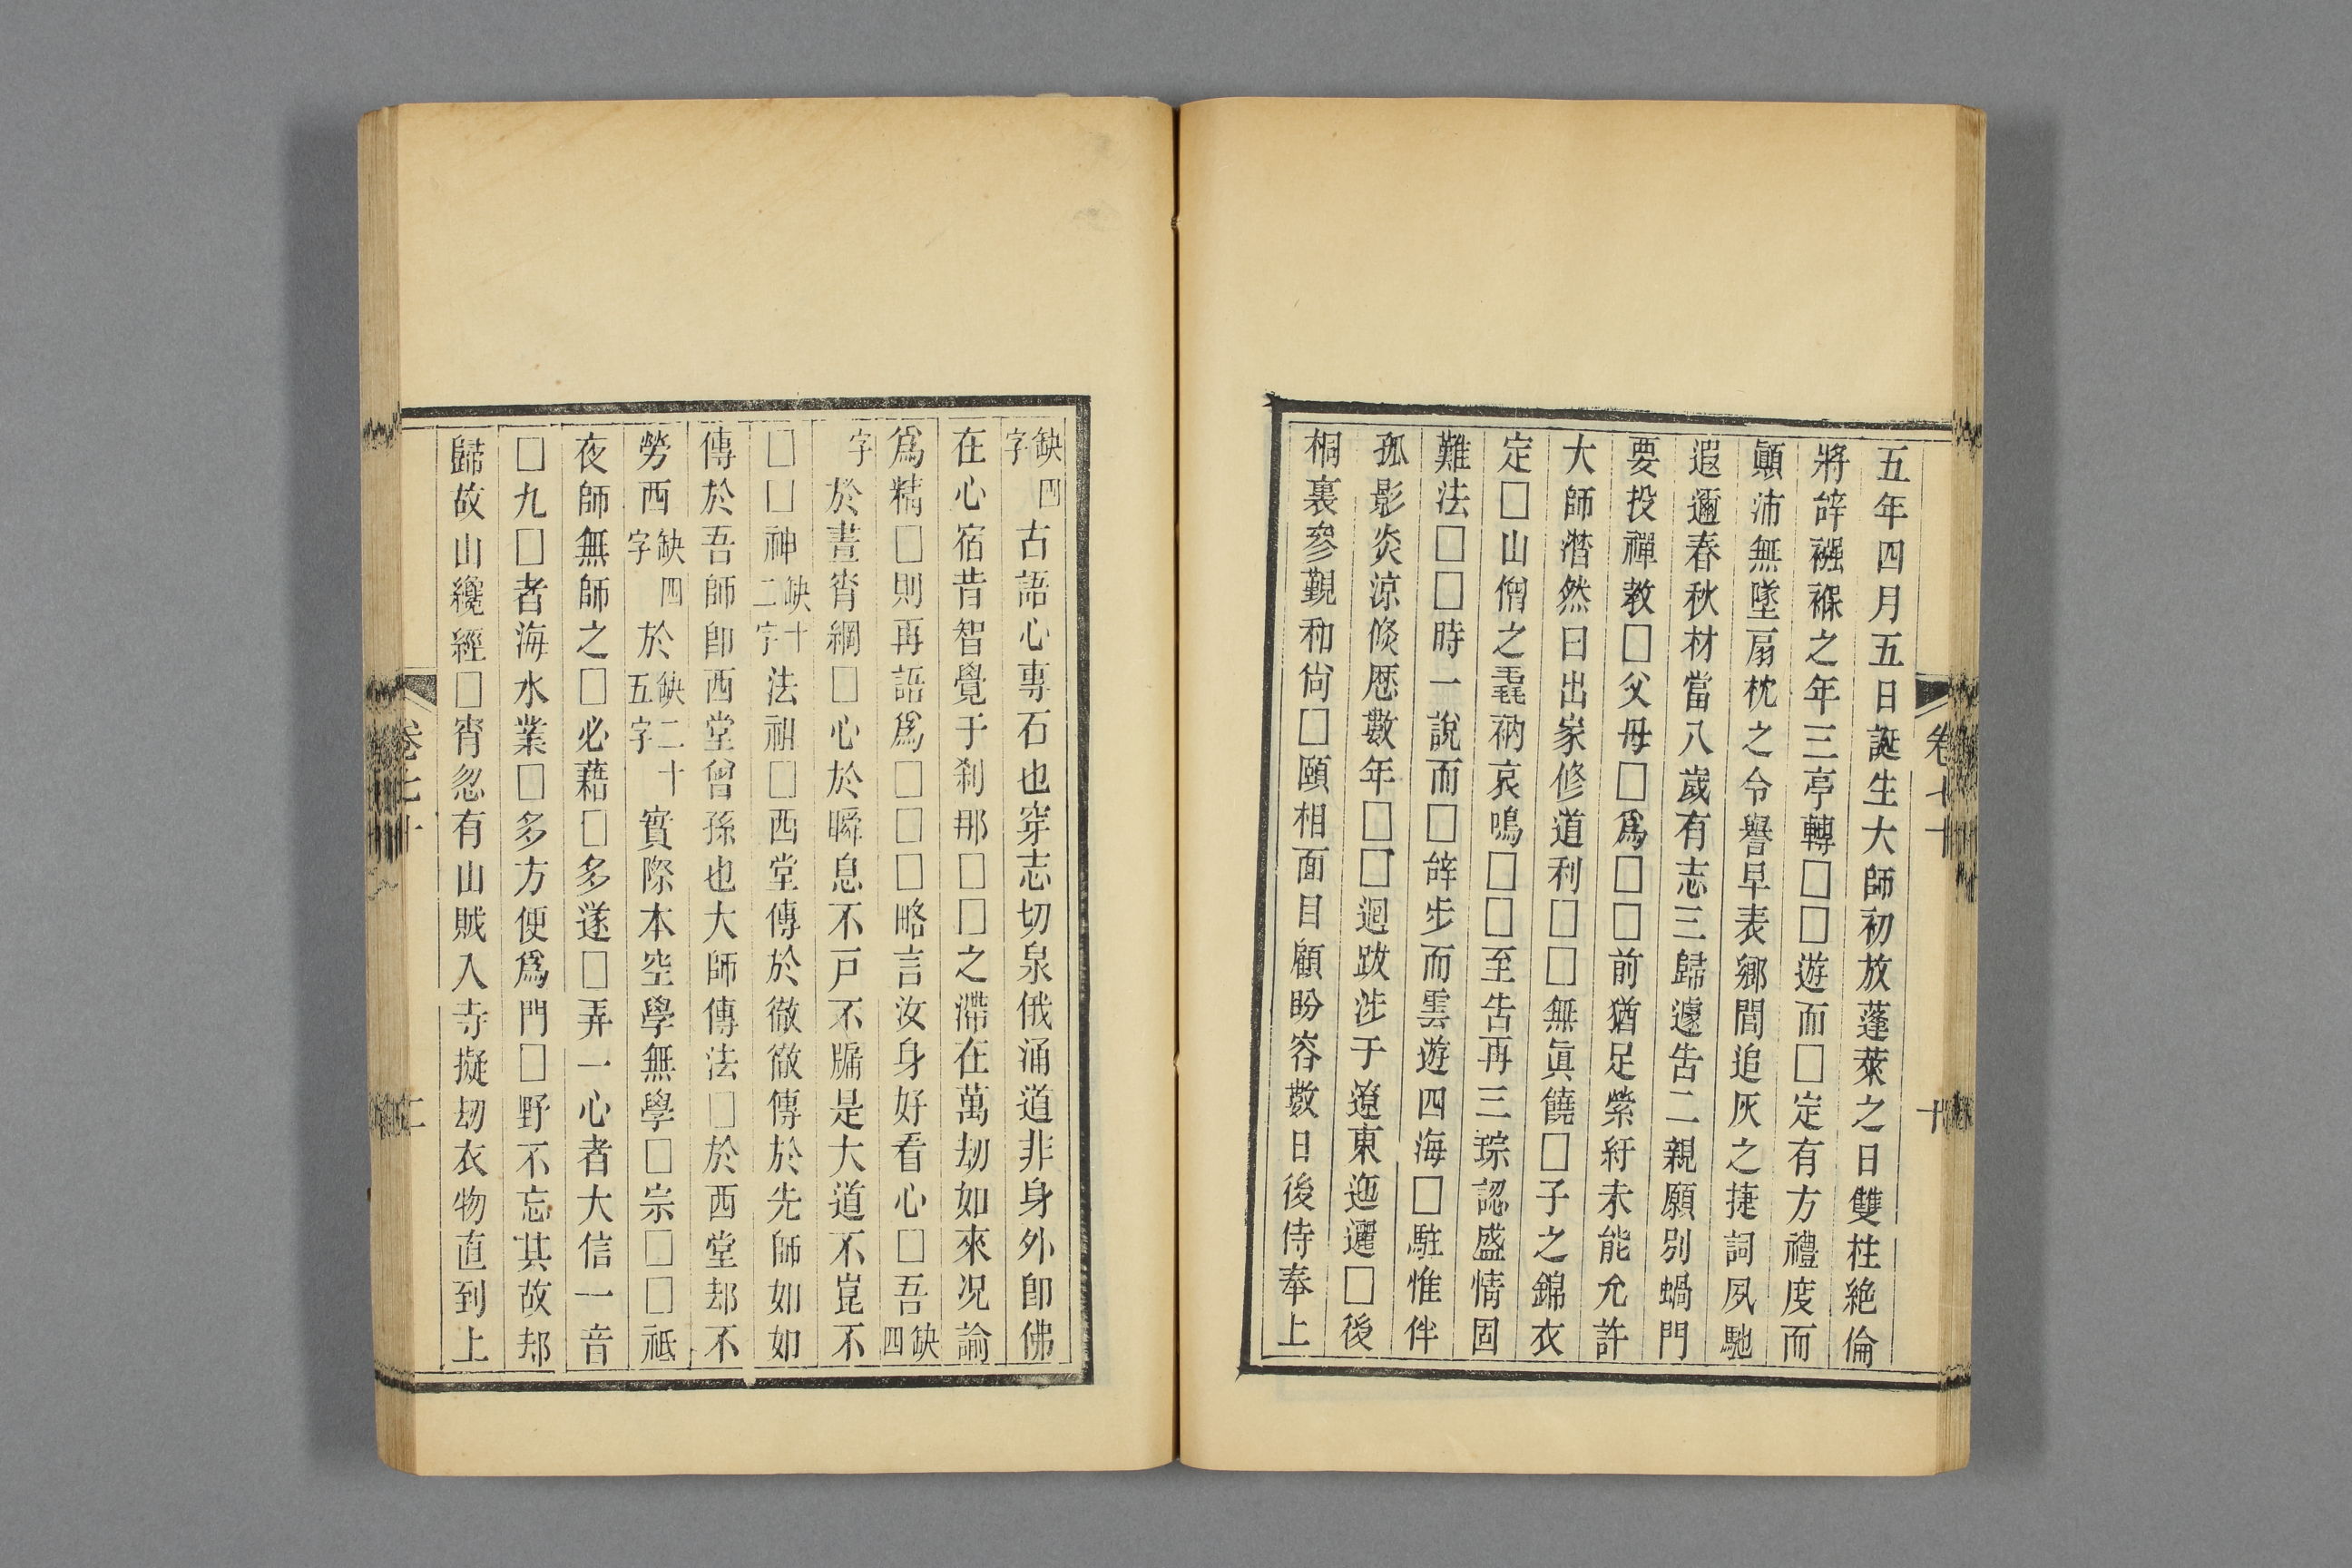 五年四月五日誕生大師初放蓬萊之日雙柱絶倫
將辭襁褓之年三亭轉□□遊而□定有方禮度而
顚沛無墜扇枕之令譽早表鄉閭追灰之捷詞夙馳
遐邇春秋材當八歲有志三歸遽吿二親願別蝸門
要投禪敎□父母□爲□□前猶足縈紆未能允許
大師潸然曰出家修道利□□無眞饒□子之錦衣
定□山僧之毳衲哀鳴□□至吿再三琮認盛情固
難法□□時一說而□辭步而雲遊四海□駐惟伴
孤影炎涼倐厯數年□□迴跋涉于遼東迤邐□後
桐裏參覲和尙□頤相面目顧盼容數日後侍奉上
缺四字古語心專石也穿志切泉俄涌道非身外卽佛
在心宿昔智覺于刹那□□之滯在萬劫如來況諭
爲精□則再語爲□□□略言汝身好看心□吾缺四
字於晝宵綱□心於瞬息不戶不牖是大道不崑不
□□神缺十二字法祖□西堂傳於徹徹傳於先師如如
傳於吾師卽西堂曾孫也大師傳法□於西堂却不
勞西缺四字於缺二十五字實際本空學無學□宗□□祇
夜師無師之□必藉□多遂□弄一心者大信一音
□九□者海水業□多方便爲門□野不忘其故却
歸故山纔經□宵忽有山賊入寺擬劫衣物直到上